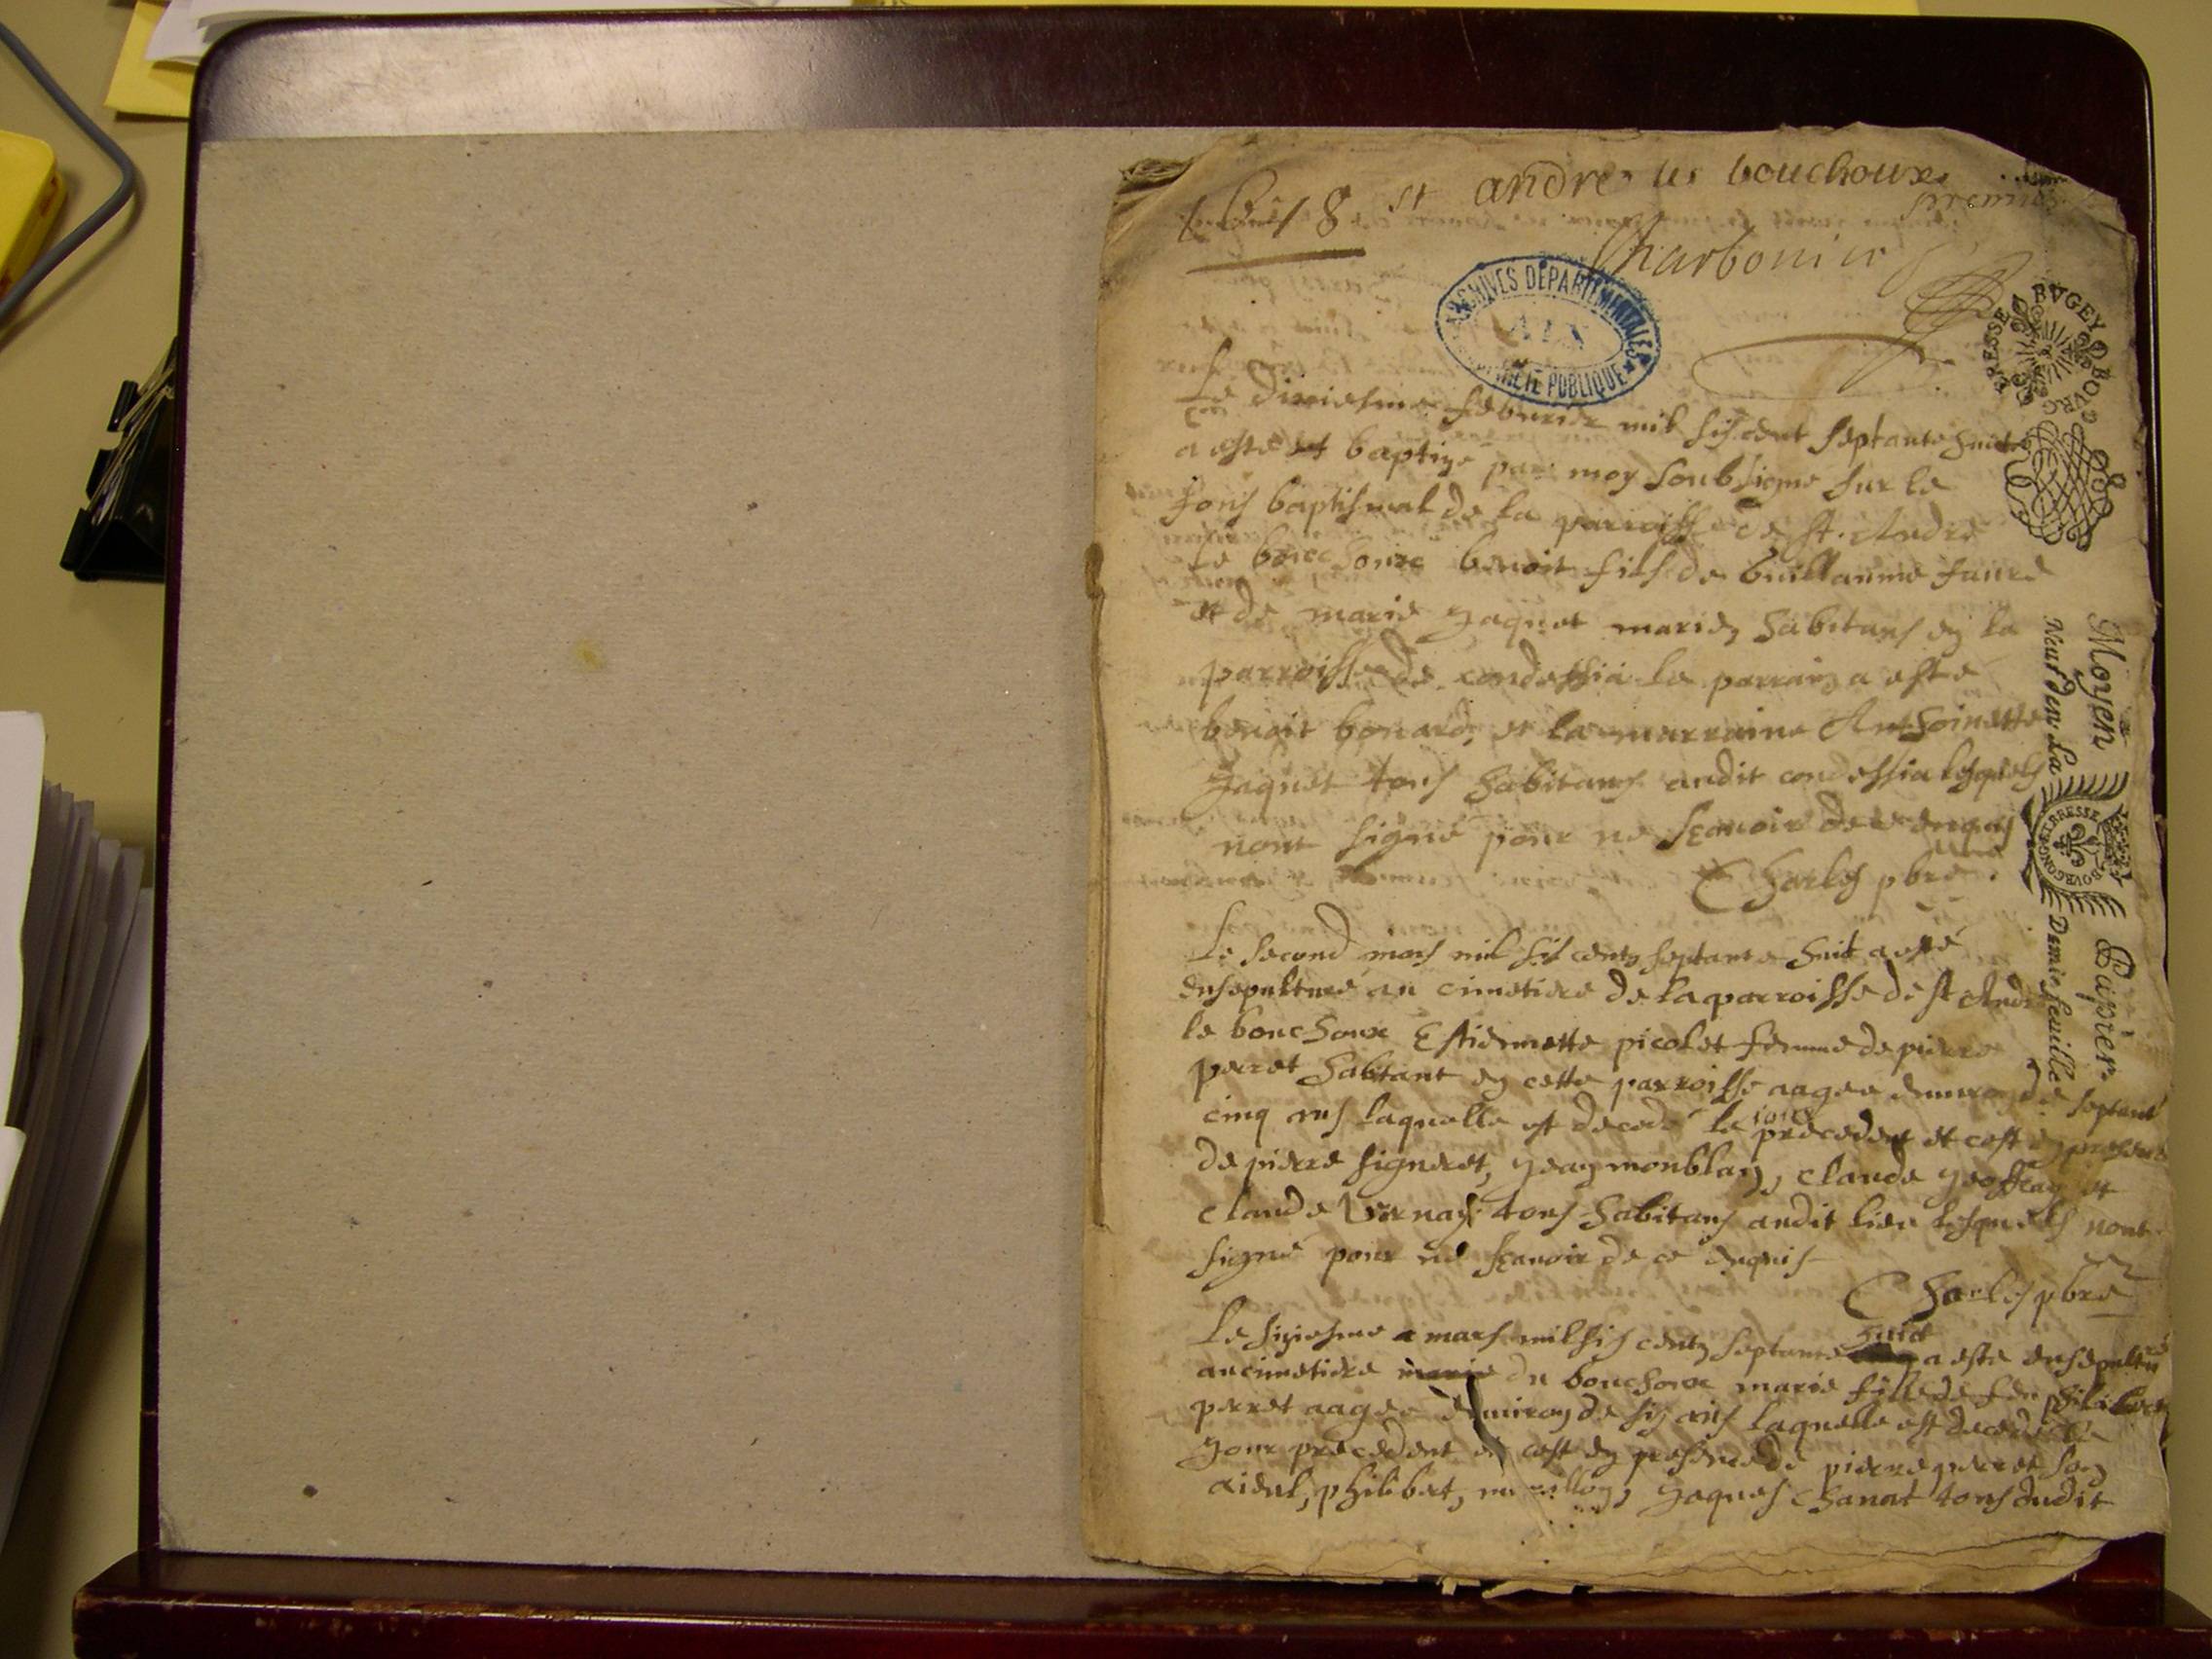 st andre les bouchoux
premier
Charbonier
ARCHIVES DÉPARTEMENTALES
AIN
PROPRIÉTÉ PUBLIQUE
BRESSE BVGEY BOVRG
Le dixiesme febvrier mil sis cent septante huict
a esté baptize par moy soubsigne sur le
fons baptismal de la parroisse de st. Andre
le bouchoux benoit fils de Guillaume faure
et de marie Jaquet mariez habitans en la
parroisse de condessia le parrain a esté
benoit bonard, et la marraine Anthoinette
Jaquet tous habitans audit condessia lesquels
nont signé pour ne scavoir de ce enquis
Charles pbre.
Moyen Papier.
Neuf den. La Demie feuille
BRESSE BOVRGONGNE
Le second mars mil sis centz septante huit a esté
ensepulturé au cimetiere de la parroisse de st Andre
le bouchoux Estiennette picolet femme de pierre
perret habitant en cette parroisse aagee denviron de septante
cinq ans laquelle est decede le jour precedent et cest en presence
de pierre signeret, Jean monblan, claude Geoffray et
claude Vernay tous habitans audit lieu lesquels nont
signé pour ne scavoir de ce enquis
Charles pbre
Le sisiesme mars mil sis centz septante huict a esté ensepulturé
au cimetiere du bouchoux marie fille de feu philibert
perret aagee denviron de sis ans laquelle est decedée le
jour precedent et cest en presence de pierre perret son
aieul, philibert, Jaques Chanat tous dudit